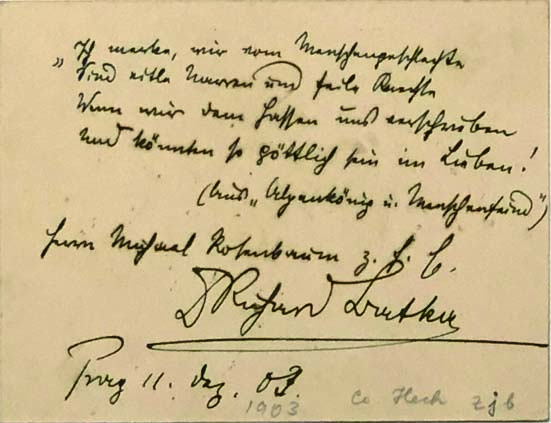 „Ich merke, wir vom Menschengeschlechte
Sind eitle Narren und feile Knechte
Wenn wir dem Hassen uns verschrieben
Und könnten so göttlich sein im Lieben!
(Aus „Alpenkönig u. Menschenfeind")
Herrn Michael Rosenbaum z. f. E.
Dr Richard Batka
Prag 11. Dez. 03.
1903 Co Hech zjb